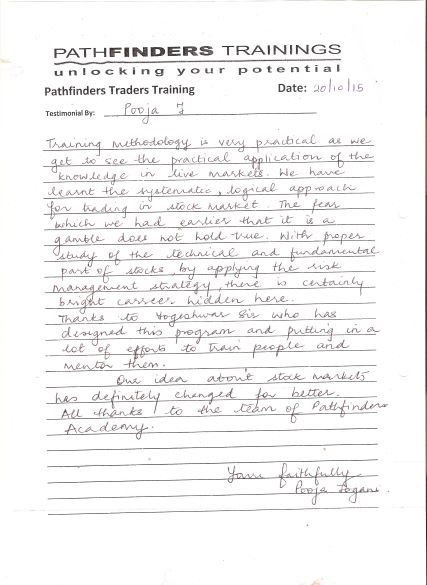 PATHFINDERS TRAININGS
unlocking your potential
Pathfinders Traders Training Date: 20/10/15
Testimonial By: Pooja J
Training methodology is very practical as we
get to see the practical application of the
knowledge in live markets. We have
learnt the systematic, logical approach
for trading in stock market. The fear
which we had earlier that it is a
gamble does not hold true. With proper
study of the technical and fundamental
part of stocks by applying the risk
management strategy, there is certainly
bright carreer hidden here.
Thanks to Yogeshwar Sir who has
designed this program and putting in a
lot of efforts to train people and
mentor them.
Our idea about stock markets
has definitely changed for better.
All thanks to the team of Pathfinders
Academy.
Yours faithfully
Pooja